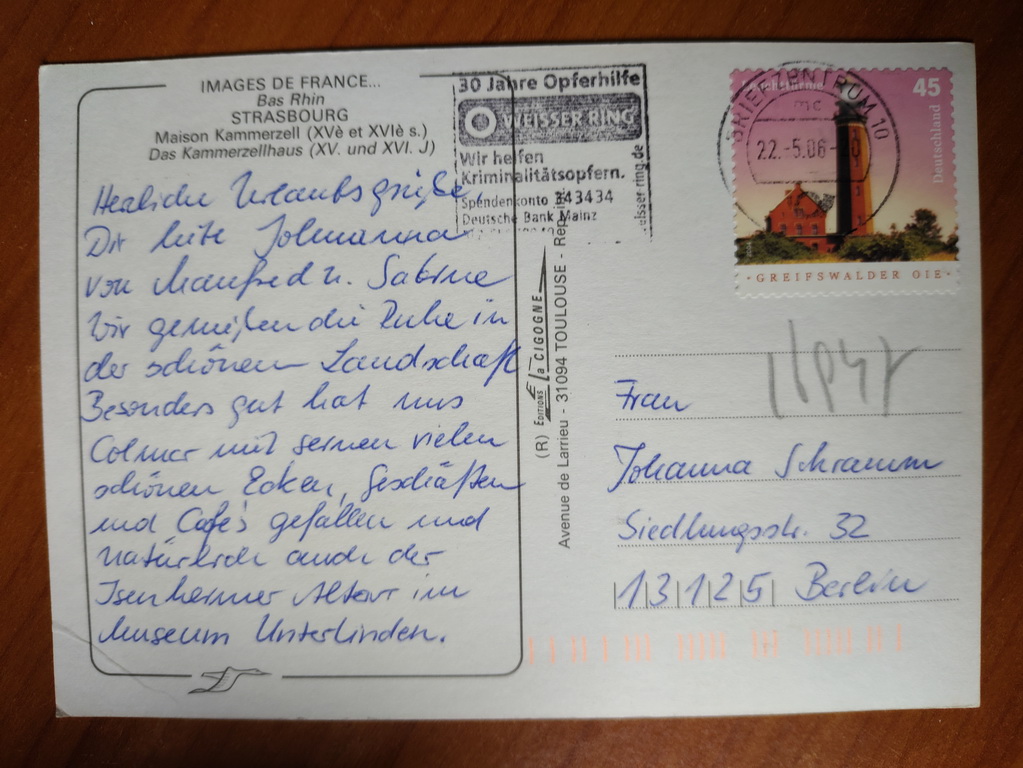 IMAGES DE FRANCE...
Bas Rhin
STRASBOURG
Maison Kammerzell (XVè et XVIè s.)
Das Kammerzellhaus (XV. und XVI. J)
Herzliche Urlaubsgrüße
Dir liebe Johnanna
von Manfred u. Sabine
Wir genießen die Ruhe in
der schönen Landschaft
Besonders gut hat uns
Colmar mit seinen vielen
schönen Ecken, Geschäften
und Cafe's gefallen und
natürlich auch der
Isenheimer Altar im
Museum Unterlinden.
30 Jahre Opferhilfe
WEISSER RING
Wir helfen
Kriminalitätsopfern.
Spendenkonto 343434
Deutsche Bank Mainz
weisser-ring.de
(R) EDITIONS la CIGOGNE
Avenue de Larrieu - 31094 TOULOUSE -
BRIEFZENTRUM 10
mc
22.-5.06-20
45
Deutschland
GREIFSWALDER OIE
Frau
Johanna Schramm
Siedlungsstr. 32
13125 Berlin